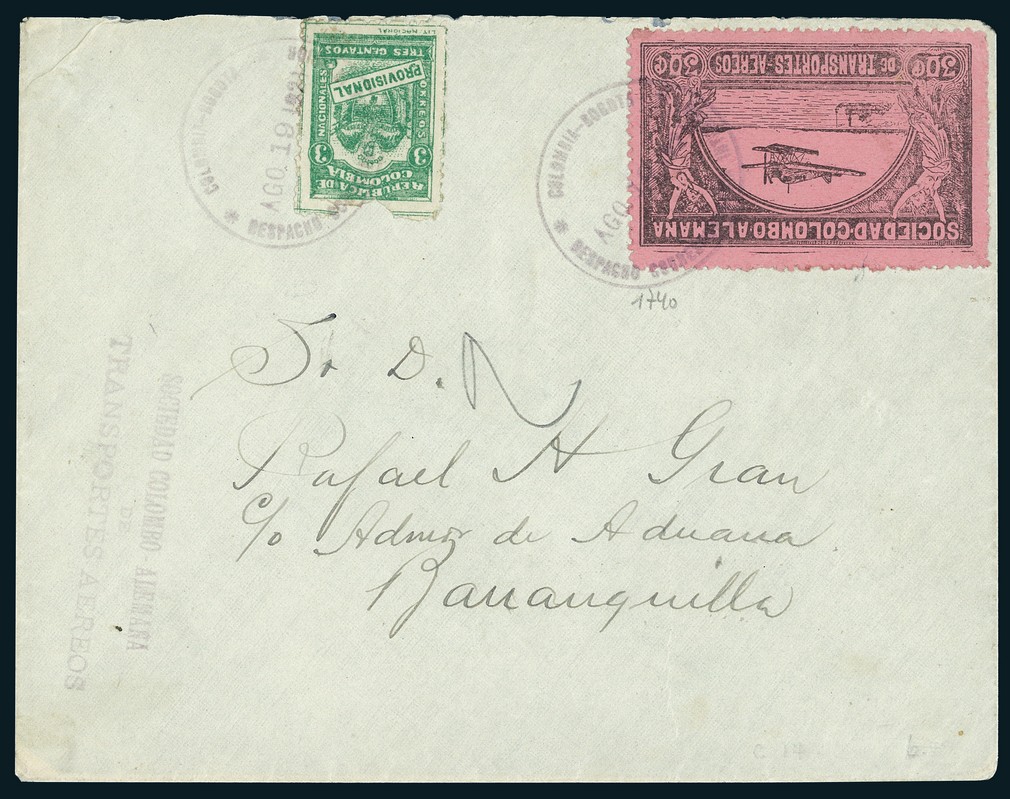 LIT. NACIONAL
TRES CENTAVOS
PROVISIONAL
CORREOS NACIONALES
3 3
REPUBLICA DE
COLOMBIA
30¢ 30¢
DE TRANSPORTES AEREOS
SOCIEDAD COLOMBO ALEMANA
COLOMBIA-BOGOTA
AGO 19
* DESPACHO
COLOMBIA-BOGOTA
AGO
* DESPACHO
1740
Sr D.
Rafael H Gran
c/o Admor de Aduana
Barranquilla
SOCIEDAD COLOMBO-ALEMANA
DE
TRANSPORTES AEREOS